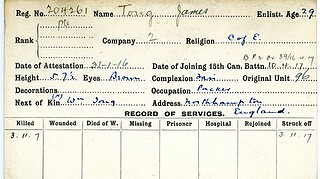 Reg. No. 204261 Name Tong, James Enlist. Age 29
Rank Pte Company 2 Religion C of E.
Date of Attestation 31-1-16 Date of Joining 15th Can. Battn. 10.4.17
Height 5.7½ Eyes Brown Complexion Original Unit 96
Decorations Occupation Packer
Next of Kin Wm Tong Address Northhampton
England.
RECORD OF SERVICES.
Killed Wounded Died of W. Missing Prisoner Hospital Rejoined Struck off
3.11.7 3.11.17